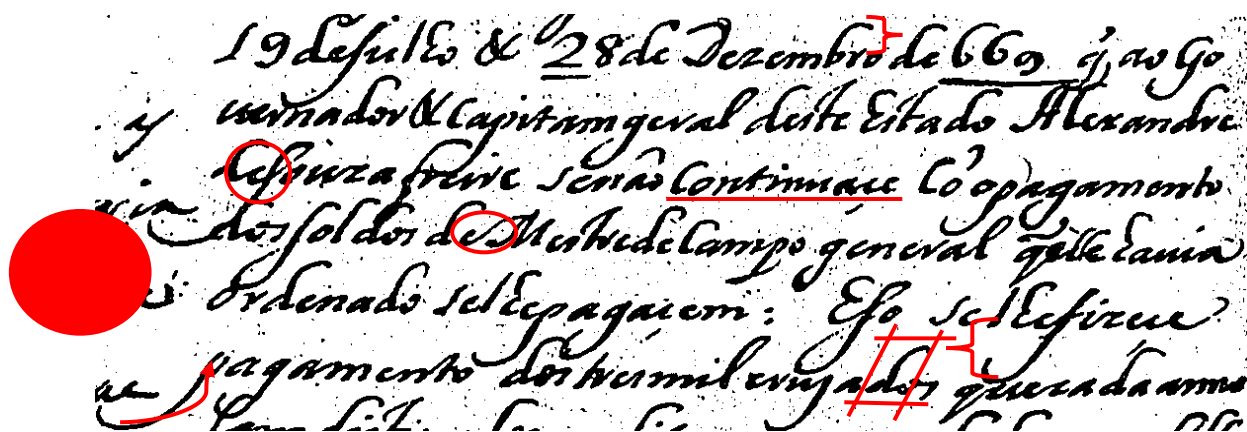 19 de Julho & 28 de Dezembro de 669 q̃ ao Go
uernador & Capitam geral deste Estado Alexandre
de souza freire senão Continuace Cõ o pagamento
dos soldos de Mestre de Campo general q̃ elle hauia
ordenado se lhe pagacem : E so se lhe fizece
pagamento dos tres mil cruzados que cada anno